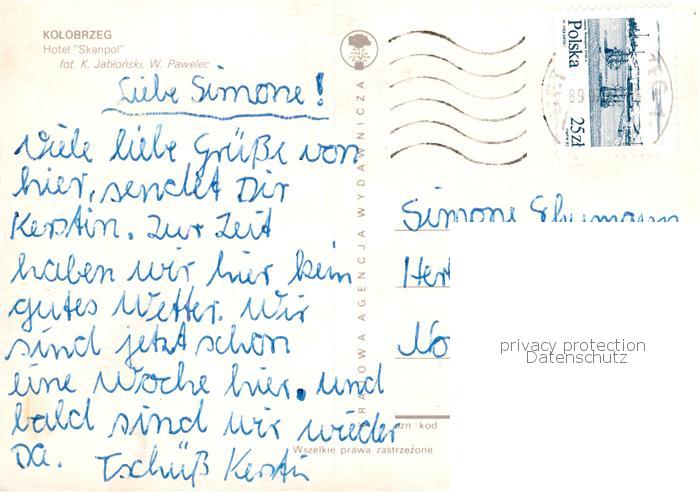 KOŁOBRZEG
Hotel "Skanpol"
fot. K. Jabłoński, W. Pawelec
Liebe Simone!
Viele liebe Grüße von
hier, sendet Dir
Kerstin. Zur Zeit
haben wir hier kein
gutes Wetter. Wir
sind jetzt schon
eine Woche hier. und
bald sind wir wieder
Da. Tschüß Kerstin
AGENCJA WYDAWNICZA
Wszelkie prawa zastrzeżone
Polska
25 zł
89
Simone
kod
privacy protection
Datenschutz